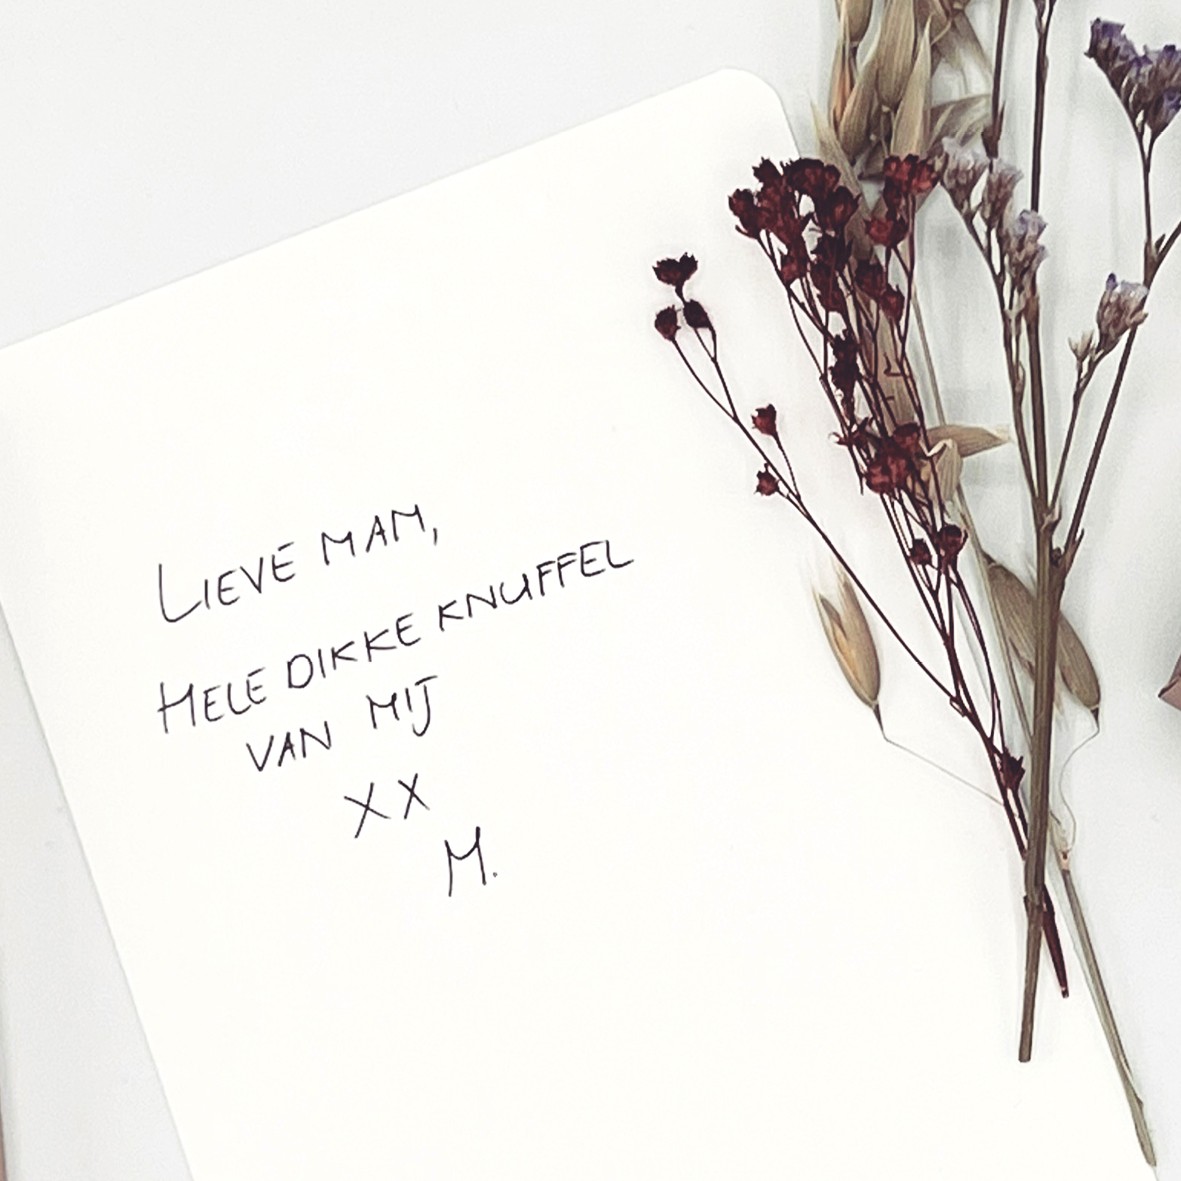 LIEVE MAM,
HELE DIKKE KNUFFEL
VAN MIJ
XX
M.